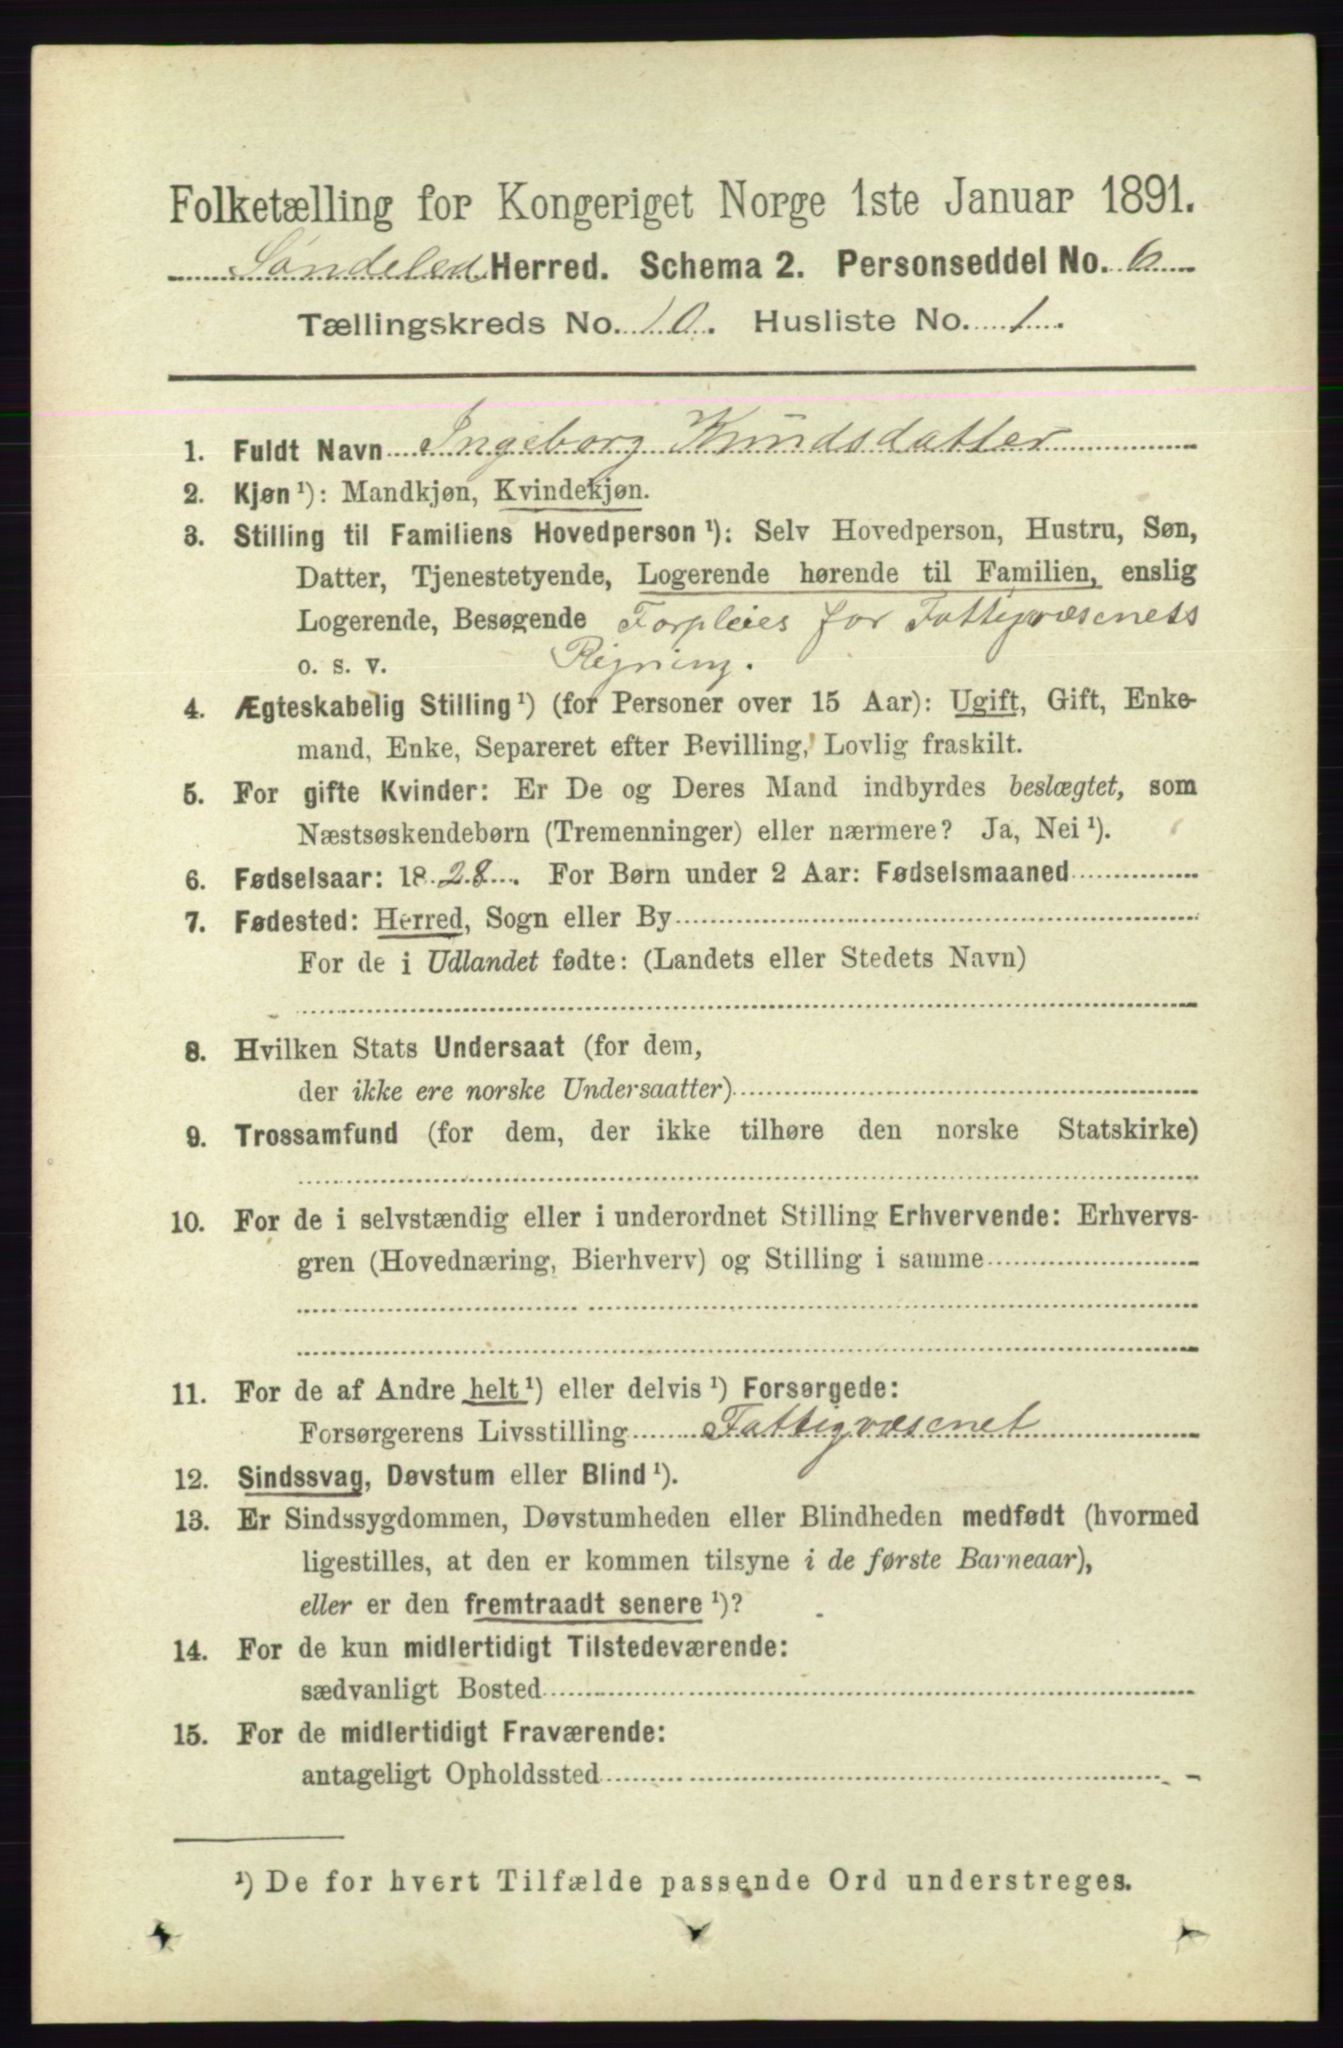 Folketælling for Kongeriget Norge 1ste Januar 1891.
Søndeled Herred. Schema 2. Personseddel No. 6
Tællingskreds No. 10. Husliste No. 1.
1. Fuldt Navn Ingeborg Knudsdatter
2. Kjøn ¹): Mandkjøn, Kvindekjøn.
3. Stilling til Familiens Hovedperson ¹): Selv Hovedperson, Hustru, Søn,
Datter, Tjenestetyende, Logerende hørende til Familien, enslig
Logerende, Besøgende Forpleies for Fattigvæsenets
o. s. v. Regning.
4. Ægteskabelig Stilling ¹) (for Personer over 15 Aar): Ugift, Gift, Enke-
mand, Enke, Separeret efter Bevilling, Lovlig fraskilt.
5. For gifte Kvinder: Er De og Deres Mand indbyrdes beslægtet, som
Næstsøskendebørn (Tremenninger) eller nærmere? Ja, Nei ¹).
6. Fødselsaar: 1828. For Børn under 2 Aar: Fødselsmaaned
7. Fødested: Herred, Sogn eller By
For de i Udlandet fødte: (Landets eller Stedets Navn)
8. Hvilken Stats Undersaat (for dem,
der ikke ere norske Undersaatter)
9. Trossamfund (for dem, der ikke tilhøre den norske Statskirke)
10. For de i selvstændig eller i underordnet Stilling Erhvervende: Erhvervs-
gren (Hovednæring, Bierhverv) og Stilling i samme
11. For de af Andre helt ¹) eller delvis ¹) Forsørgede:
Forsørgerens Livsstilling Fattigvæsenet
12. Sindssvag, Døvstum eller Blind ¹).
13. Er Sindssygdommen, Døvstumheden eller Blindheden medfødt (hvormed
ligestilles, at den er kommen tilsyne i de første Barneaar),
eller er den fremtraadt senere ¹)?
14. For de kun midlertidigt Tilstedeværende:
sædvanligt Bosted
15. For de midlertidigt Fraværende:
antageligt Opholdssted
¹) De for hvert Tilfælde passende Ord understreges.